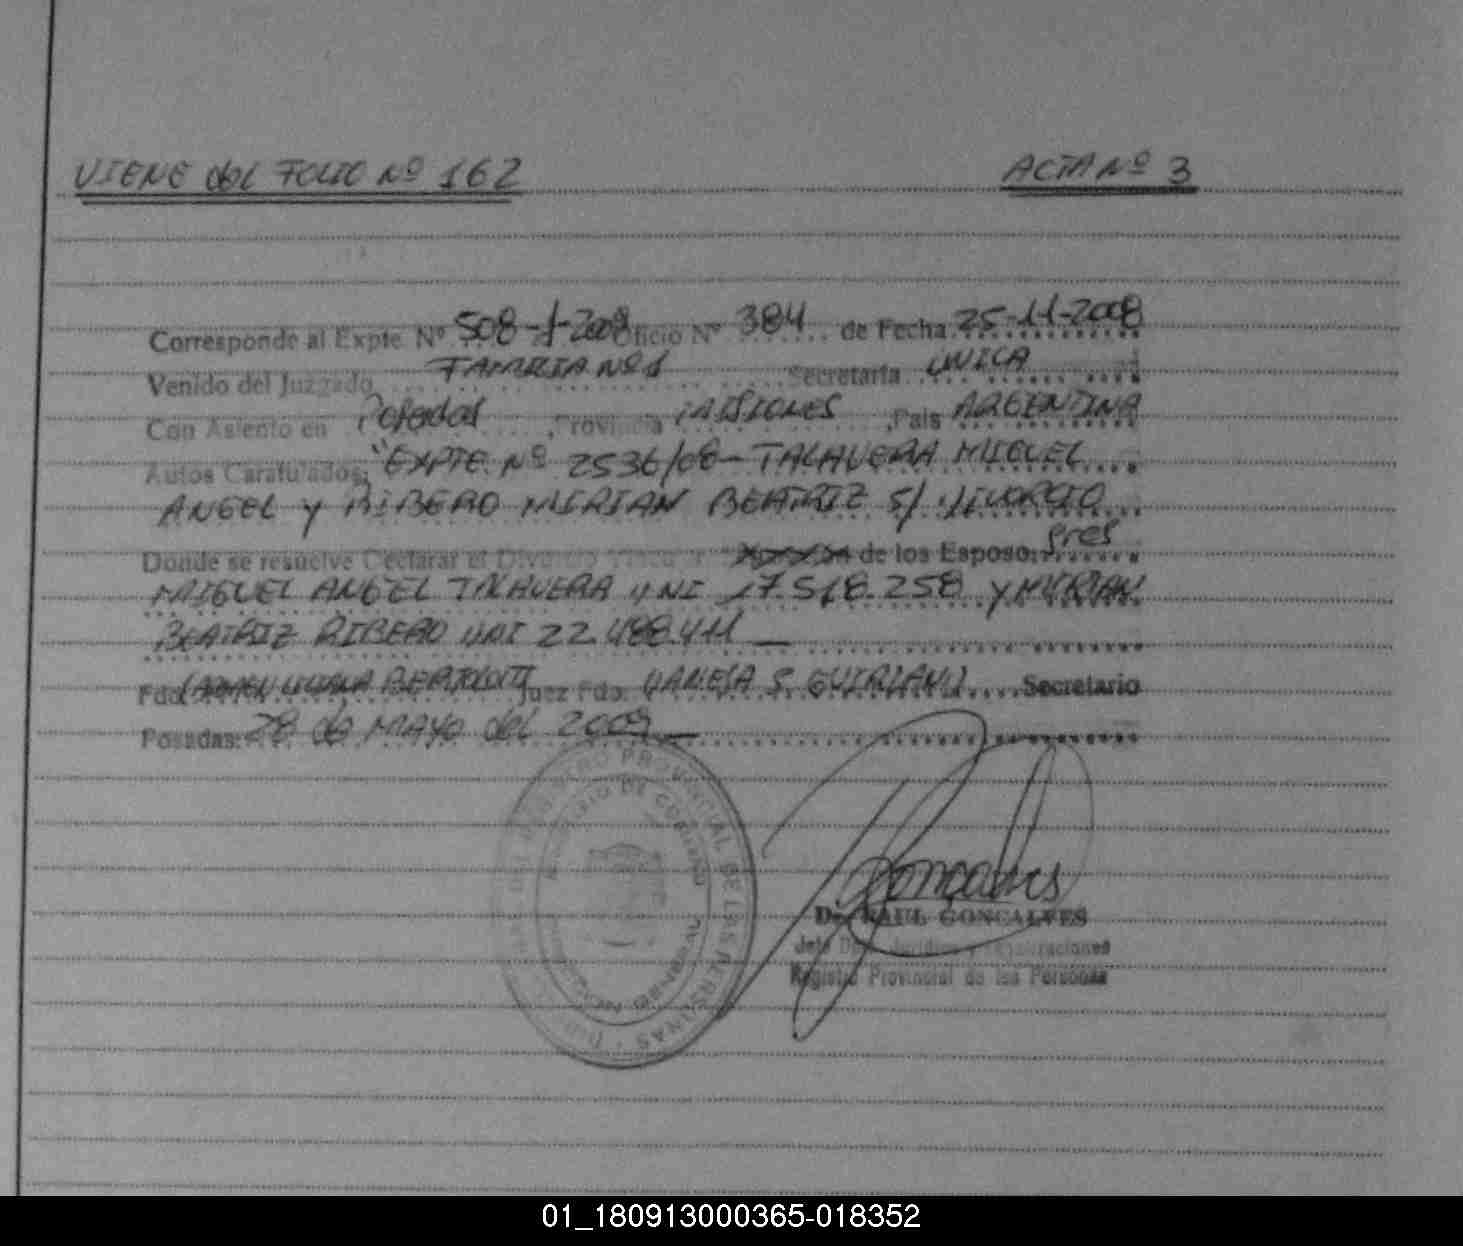 VIENE del FOLIO Nº 162 ACTA Nº 3
Corresponde al Expte Nº 508-J-2008 Oficio Nº 384 de Fecha 25-11-2008
Venido del Juzgado FAMILIA Nº 1 Secretaria UNICA
Con Asiento en Posadas, Provincia MISIONES, Pais ARGENTINA
Autos Caratulados: "EXPTE Nº 2536/08 - TALAVERA MIGUEL
ANGEL y RIBERO MIRIAN BEATRIZ S/ DIVORCIO
Donde se resuelve Declarar el Divorcio de los Esposo: Sres
MIGUEL ANGEL TALAVERA DNI 17.518.258 y MIRIAN
BEATRIZ RIBERO DNI 22.488.411
Fdo. CARMEN BERTOLOTTI Juez Fdo. VANESA S. Secretario
Posadas: 28 de MAYO del 2009
REGISTRO PROVINCIAL DE LAS PERSONAS
MINISTERIO DE GOBIERNO
Goncalves
Dr. RAUL GONCALVES
Jefe Jurídico y
Registro Provincial de las Personas
01_180913000365-018352